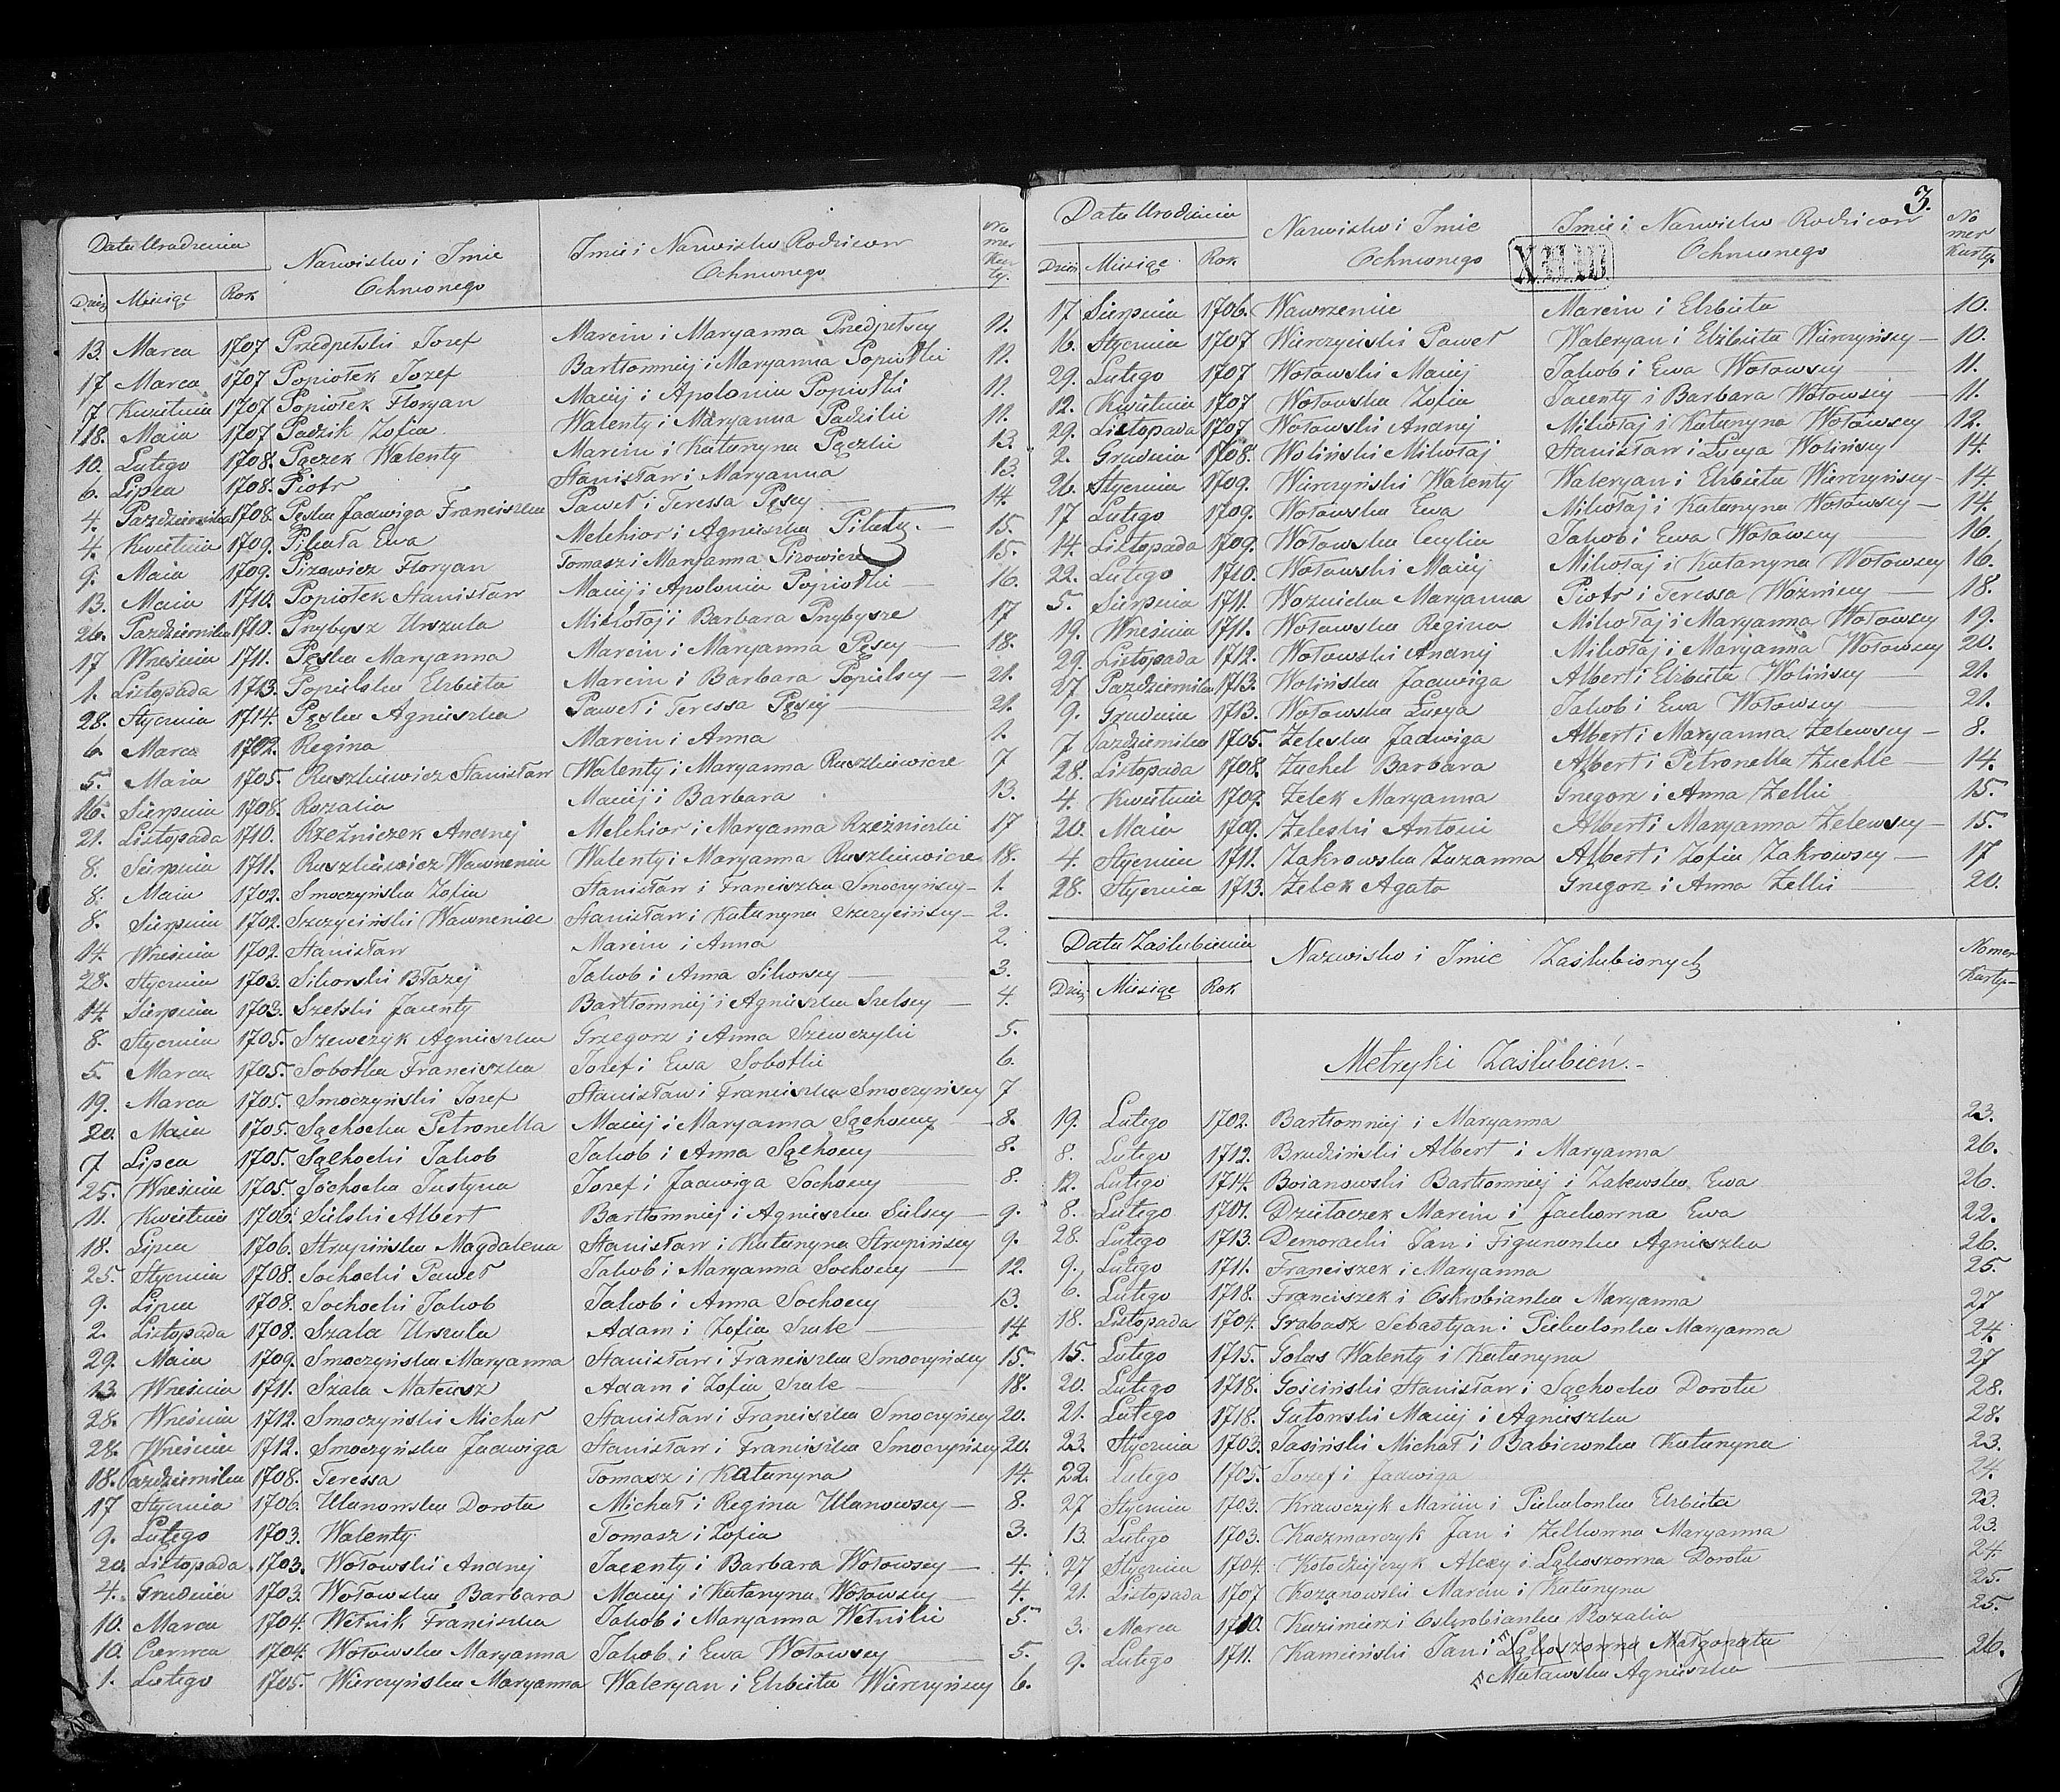 Data Urodzenia
Nazwisko i Imie Ochrzconego
Imie i Nazwisko Rodzicow Ochrzconego
No mer Kar ty.
Dzień Miesiąc Rok
13. Marca 1707 Przedpełski Jozef Marcin i Maryanna Przedpełscy 11.
17 Marca 1707 Popiołek Jozef Bartłomniej i Maryanna Popiołki 11.
7 Kwietnia 1707 Popiołek Floryan Maciej i Apolonia Popiołki 11.
18. Maia 1707 Padzik Zofia Walenty i Maryanna Padziki 11.
10. Lutego 1708. Pączek Walenty Marcin i Katarzyna Pączki 13.
6. Lipca 1708. Piotr Stanisław i Maryanna 13.
4. Pazdziernika 1708. Pęska Jadwiga Franciszka Paweł i Teressa Pęscy 14.
4. Kwietnia 1709. Pikuła Ewa Melchior i Agnieszka 15.
9. Maia 1709. Pirowicz Floryan Tomasz i Maryanna Pirowicze 15.
13. Maia 1710. Popiołek Stanisław Maciej i Apolonia Popiołki 16.
26. Pazdziernika 1710. Przybysz Urszula Mikołaj i Barbara Przybysze 17
17 Września 1711. Pęska Maryanna Marcin i Maryanna Pęscy 18.
1. Listopada 1713. Popielska Elzbieta Marcin i Barbara Popielscy 21.
28. Stycznia 1714. Pęska Agnieszka Paweł i Teressa Pęscy 21.
6. Marca 1702. Regina Marcin i Anna 1.
5. Maia 1705. Ruszkiewicz Stanisław Walenty i Maryanna Ruszkiewicze 7
16. Sierpnia 1708. Rozalia Maciej i Barbara 13.
21. Listopada 1710. Rzeźniczek Andrzej Melchior i Maryanna Rzeźniczki 17
8. Sierpnia 1711. Ruszkiewicz Wawrzeniec Walenty i Maryanna Ruszkiewicze 18.
8. Maia 1702. Smoczyńska Zofia Stanisław i Franciszka Smoczyńscy 1.
8. Sierpnia 1702. Szczyciński Wawrzeniec Stanisław i Katarzyna Szczycińscy 2.
14. Września 1702. Stanisław Marcin i Anna 2.
28. Stycznia 1703. Sikorski Błazej Jakob i Anna Sikorscy 3.
14. Sierpnia 1703. Szelski Jacenty Bartłomniej i Agnieszka Szelscy 4.
8. Stycznia 1705. Szewczyk Agnieszka Grzegorz i Anna Szewczyki 5.
5. Marca 1705. Sobotka Franciszka Jozef i Ewa Sobotki 6.
19. Marca 1705. Smoczyński Jozef Stanisław i Franciszka Smoczyńscy 7
20. Maia 1705. Sąchocka Petronella Maciej i Maryanna Sąchoccy 8.
7 Lipca 1705. Sąchocki Jakob Jakob i Anna Sąchoccy 8.
25. Września 1705. Sochocka Justyna Jozef i Jadwiga Sochoccy 8.
11. Kwietnia 1706. Sielski Albert Bartłomniej i Agnieszka Sielscy 9.
18. Lipca 1706. Strupińska Magdalena Stanisław i Katarzyna Strupińscy 9.
25. Stycznia 1708. Sochocki Paweł Jakob i Maryanna Sochoccy 12.
9. Lipca 1708. Sochocki Jakob Jakob i Anna Sochoccy 13.
2. Listopada 1708. Szala Urszula Adam i Zofia Szale 14.
29. Maia 1709. Smoczyńska Maryanna Stanisław i Franciszka Smoczyńscy 15.
13. Września 1711. Szala Mateusz Adam i Zofia Szale 18.
28. Września 1712. Smoczyński Michał Stanisław i Franciszka Smoczyńscy 20.
28. Września 1712. Smoczyńska Jadwiga Stanisław i Franciszka Smoczyńscy 20.
18. Pazdziernika 1708. Teressa Tomasz i Katarzyna 14.
17 Stycznia 1706. Ulanowska Dorota Michał i Regina Ulanowscy 8.
9. Lutego 1703. Walenty Tomasz i Zofia 3.
20. Listopada 1703. Wołowski Andrzej Jacenty i Barbara Wołowscy 4.
4. Grudnia 1703. Wołowska Barbara Maciej i Katarzyna Wołowscy 4.
10. Marca 1704. Wełnik Franciszka Jakob i Maryanna Wełniki 5.
10. Czerwca 1704. Wołowska Maryanna Jakob i Ewa Wołowscy 5.
1. Lutego 1705. Wierczyńska Maryanna Waleryan i Elzbieta Wierczyńscy 6.
3.
Data Urodzenia
Nazwisko i Imie Ochrzconego
Imie i Nazwisko Rodzicow Ochrzconego
No mer Karty.
Dzień Miesiąc Rok
17 Sierpnia 1706. Wawrzeniec Marcin i Elzbieta 10.
16. Stycznia 1707 Wierzyciski Paweł Waleryan i Elzbieta Wierczyńscy 10.
29. Lutego 1707 Wołowski Maciej Jakob i Ewa Wołowscy 11.
12. Kwietnia 1707 Wołowska Zofia Jacenty i Barbara Wołowscy 11.
29. Listopada 1707 Wołowski Andrzej Mikołaj i Katarzyna Wołowscy 12.
2. Grudnia 1708. Woliński Mikołaj Stanisław i Lucya Wolińscy 14.
26. Stycznia 1709. Wierczyński Walenty Waleryan i Elzbieta Wierczyńscy 14.
17 Lutego 1709. Wołowska Ewa Mikołaj i Katarzyna Wołowscy 14.
14. Listopada 1709. Wołowska Cecylia Jakob i Ewa Wołowscy 16.
22. Lutego 1710. Wołowski Maciej Mikołaj i Katarzyna Wołowscy 16.
5. Sierpnia 1711. Woznicka Maryanna Piotr i Teressa Wożniccy 18.
19. Września 1711. Wołowska Regina Mikołaj i Maryanna Wołowscy 19.
29. Listopada 1712. Wołowski Andrzej Mikołaj i Maryanna Wołowscy 20.
27 Pazdziernika 1713. Wolińska Jadwiga Albert i Elzbieta Wolińscy 21.
9. Grudnia 1713. Wołowska Lucya Jakob i Ewa Wołowscy 21.
7 Pazdziernika 1705. Zeleska Jadwiga Albert i Maryanna Zelewscy 8.
28. Listopada 1708. Zuchel Barbara Albert i Petronella Zuchle 14.
4. Kwietnia 1709. Zelek Maryanna Grzegorz i Anna Zelki 15.
20. Maia 1709. Zeleski Antoni Albert i Maryanna Zelewscy 15.
4. Stycznia 1711. Zakrowska Zuzanna Albert i Zofia Zakrowscy 17
28. Stycznia 1713. Zelek Agata Grzegorz i Anna Zelki 20.
Data Zaślubienia
Nazwisko i Imie Zaślubionych
Nomer Karty
Dzień Miesiąc Rok
Metryki Zaślubień.
19. Lutego 1702. Bartłomniej i Maryanna 23.
8. Lutego 1712. Brudziński Albert i Maryanna 26.
12. Lutego 1714. Boianowski Bartłomniej i Zalewska Ewa 26.
8. Lutego 1701. Dziełaczek Marcin i Jachowna Ewa 22.
28. Lutego 1713. Demoracki Jan i Figurowka Agnieszka 26.
9. Lutego 1711. Franciszek i Maryanna 25.
6. Lutego 1718. Franciszek i Oskrobianka Maryanna 27
18. Listopada 1704. Grabasz Sebastyan i Piekulonka Maryanna 24.
15. Lutego 1715. Golas Walenty i Katarzyna 27
20. Lutego 1718. Gościński Stanisław i Sąchocka Dorota 28.
21. Lutego 1718. Gutowski Maciej i Agnieszka 28.
23. Stycznia 1703. Jasiński Michał i Babiczonka Katarzyna 23.
22. Lutego 1705. Jozef i Jadwiga 24.
27 Stycznia 1703. Krawczyk Marcin i Piekulonka Elzbieta 23.
13. Lutego 1703. Kaczmarczyk Jan i Zelkowna Maryanna 23.
27 Stycznia 1704. Kołodziejczyk Alexy i Ląkoszowna Dorota 24.
21. Listopada 1707 Kozanowski Marcin i Katarzyna 25.
3. Marca 1710. Kazimierz i Oskrobianka Rozalia 25.
9. Lutego 1711. Kamieński Jan i Ląkoszowna Małgorzata 26.
Matawska Agnieszka